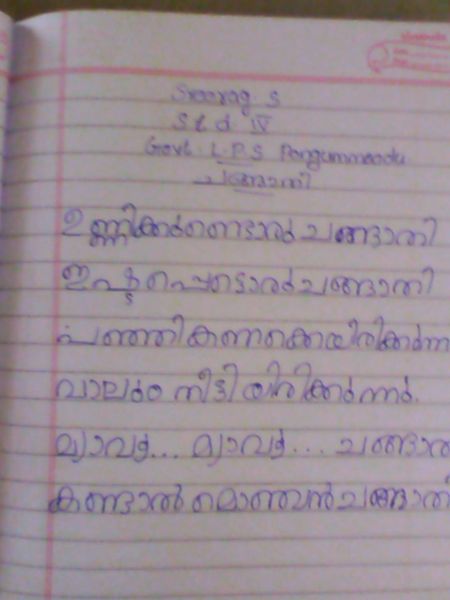 Sreerag. S
Std IV
Govt. L.P.S Pongummoodu
ചങ്ങാതി
ഉണ്ണിക്കുണ്ടൊരു ചങ്ങാതി
ഇഷ്ടപ്പെട്ടൊരു ചങ്ങാതി
പഞ്ഞി കണക്കെയിരിക്കുന്ന
വാലും നീട്ടിയിരിക്കുന്നു.
മ്യാവൂ... മ്യാവൂ... ചങ്ങാ
കണ്ടാൽ മൊഞ്ചൻ ചങ്ങാതി